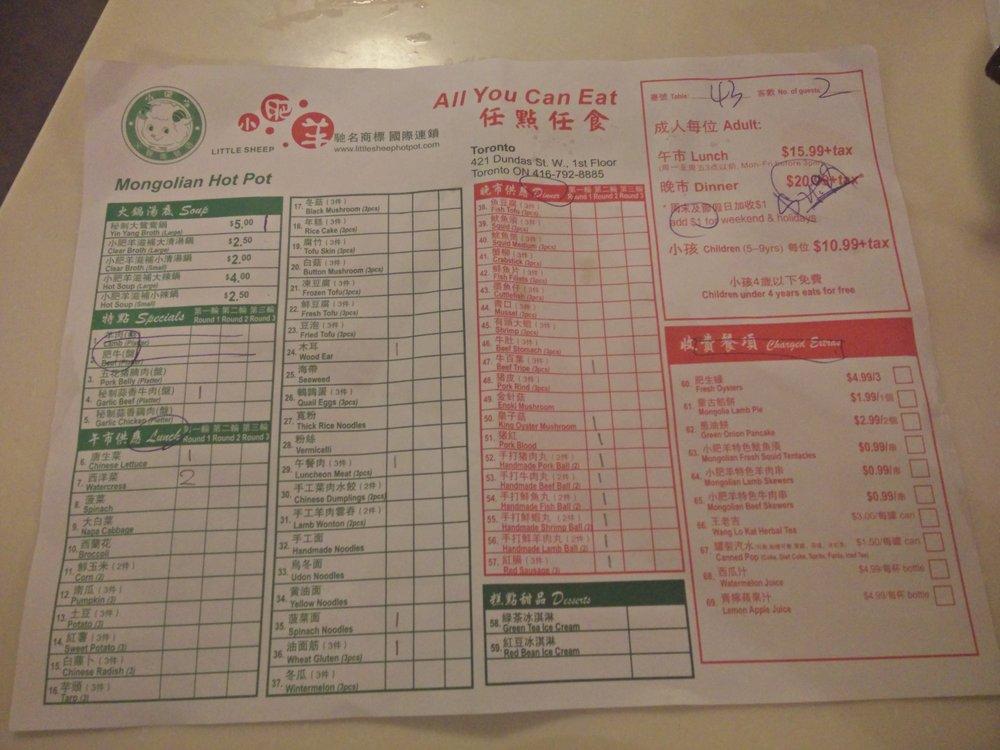 小肥羊
LITTLE SHEEP
馳名商標 國際連鎖
www.littlesheephotpot.com
Mongolian Hot Pot
All You Can Eat
任點任食
Toronto
421 Dundas St. W., 1st Floor
Toronto ON 416-792-8885
臺號 Table: 43 客數 No. of guests 2
成人每位 Adult:
午市 Lunch $15.99+tax
晚市 Dinner
add $1 for weekend & holidays
小孩 Children (5–9yrs) 每位 $10.99+tax
小孩4歲以下免費
Children under 4 years eats for free
火鍋湯底 Soup
秘制大鴛鴦鍋 $5.00 1
Yin Yang Broth (Large)
小肥羊滋補大清湯鍋 $2.50
Clear Broth (Large)
小肥羊滋補小清湯鍋 $2.00
Clear Broth (Small)
小肥羊滋補大辣鍋 $4.00
Hot Soup (Large)
小肥羊滋補小辣鍋 $2.50
Hot Soup (Small)
特點 Specials 第一輪 第二輪 第三輪
Round 1 Round 2 Round 3
1. 羊肉(盤)
Lamb (Platter)
2. 肥牛(盤)
Beef (Platter)
3. 五花猪腩肉(盤)
Pork Belly (Platter)
4. 秘制蒜香牛肉(盤) 1
Garlic Beef (Platter)
5. 秘制蒜香鷄肉(盤)
Garlic Chicken (Platter)
午市供應 Lunch 第一輪 第二輪 第三輪
Round 1 Round 2 Round 3
6. 唐生菜 1
Chinese Lettuce
7. 西洋菜 2
Watercress
8. 菠菜
Spinach
9. 大白菜
Napa Cabbage
10. 西蘭花
Broccoli
11. 鮮玉米 (2件)
Corn (2)
12. 南瓜 (3件)
Pumpkin (3)
13. 土豆 (3件)
Potato (3)
14. 紅薯 (3件)
Sweet Potato (3)
15. 白蘿卜 (3件)
Chinese Radish (3)
16. 芋頭 (3件)
Taro (3)
17. 冬菇 (3件)
Black Mushroom (3pcs)
18. 年糕 (3件)
Rice Cake (3pcs)
19. 腐竹 (3件)
Tofu Skin (3pcs)
20. 白菇 (3件)
Button Mushroom (3pcs)
21. 凍豆腐 (3件)
Frozen Tofu(3pcs)
22. 鮮豆腐 (3件)
Fresh Tofu (3pcs)
23. 豆泡 (3件)
Fried Tofu (3pcs)
24. 木耳 1
Wood Ear
25. 海帶
Seaweed
26. 鵪鶉蛋 (3件)
Quail Eggs (3pcs)
27. 寬粉
Thick Rice Noodles
28. 粉絲
Vermicelli
29. 午餐肉 (3件) 1
Luncheon Meat (3pcs)
30. 手工菜肉水餃 (2件)
Chinese Dumplings (3pcs)
31. 手工羊肉雲吞 (2件)
Lamb Wonton (3pcs)
32. 手工面
Handmade Noodles
33. 烏冬面
Udon Noodles
34. 黄油面
Yellow Noodles
35. 菠菜面 1
Spinach Noodles
36. 油面筋 (3件) 1
Wheat Gluten (3pcs)
37. 冬瓜 (3件)
Wintermelon (3pcs)
晚市供應 Dinner 第一輪 第二輪 第三輪
Round 1 Round 2 Round 3
38. 魚豆腐 (3件)
Fish Tofu (3pcs)
39. 魷魚須 (3件)
Squid (3pcs)
40. 魷魚筒 (3件)
Squid Medium (3pcs)
41. 蟹柳 (3件)
Crabstick (3pcs)
42. 鮮魚片 (3件)
Fish Fillets (3pcs)
43. 墨魚仔 (3件)
Cuttlefish (3pcs)
44. 青口 (3件)
Mussel (3pcs)
45. 有頭大蝦 (3件)
Shrimp (3pcs)
46. 牛肚 (3件)
Beef Stomach (3pcs)
47. 牛百葉 (3件) 1
Beef Tripe (3pcs)
48. 猪皮 (3件)
Pork Rind (3pcs)
49. 金針菇
Enoki Mushroom
50. 皇子菇
King Oyster Mushroom
51. 猪紅 1
Pork Blood
52. 手打猪肉丸 (2件) 1
Handmade Pork Ball (2)
53. 手打牛肉丸 (2件) 1
Handmade Beef Ball (2)
54. 手打鮮魚丸 (2件) 1
Handmade Fish Ball (2)
55. 手打鮮蝦丸 (2件) 1
Handmade Shrimp Ball (2)
56. 手打鮮羊肉丸 (2件) 1
Handmade Lamb Ball (2)
57. 紅腸 (3件) 1
Red Sausage (3)
糕點甜品 Desserts
58. 綠茶冰淇淋
Green Tea Ice Cream
59. 紅豆冰淇淋
Red Bean Ice Cream
收費餐項 Charged Extras
60. 肥生蠔 $4.99/3
Fresh Oysters
61. 蒙古餡餅 $1.99/1個
Mongolia Lamb Pie
62. 葱油餅 $2.99/2個
Green Onion Pancake
63. 小肥羊特色魷魚須 $0.99/串
Mongolian Fresh Squid Tentacles
64. 小肥羊特色羊肉串 $0.99/串
Mongolian Lamb Skewers
65. 小肥羊特色牛肉串 $0.99/串
Mongolian Beef Skewers
66. 王老吉 $3.00/每罐 can
Wang Lo Kat Herbal Tea
67. 罐裝汽水 $1.50/每罐 can
Canned Pop (Coke, Diet Coke, Sprite, Fanta, Iced Tea)
68. 西瓜汁 $4.99/每杯 bottle
Watermelon Juice
69. 青檸蘋果汁 $4.99/每杯 bottle
Lemon Apple Juice